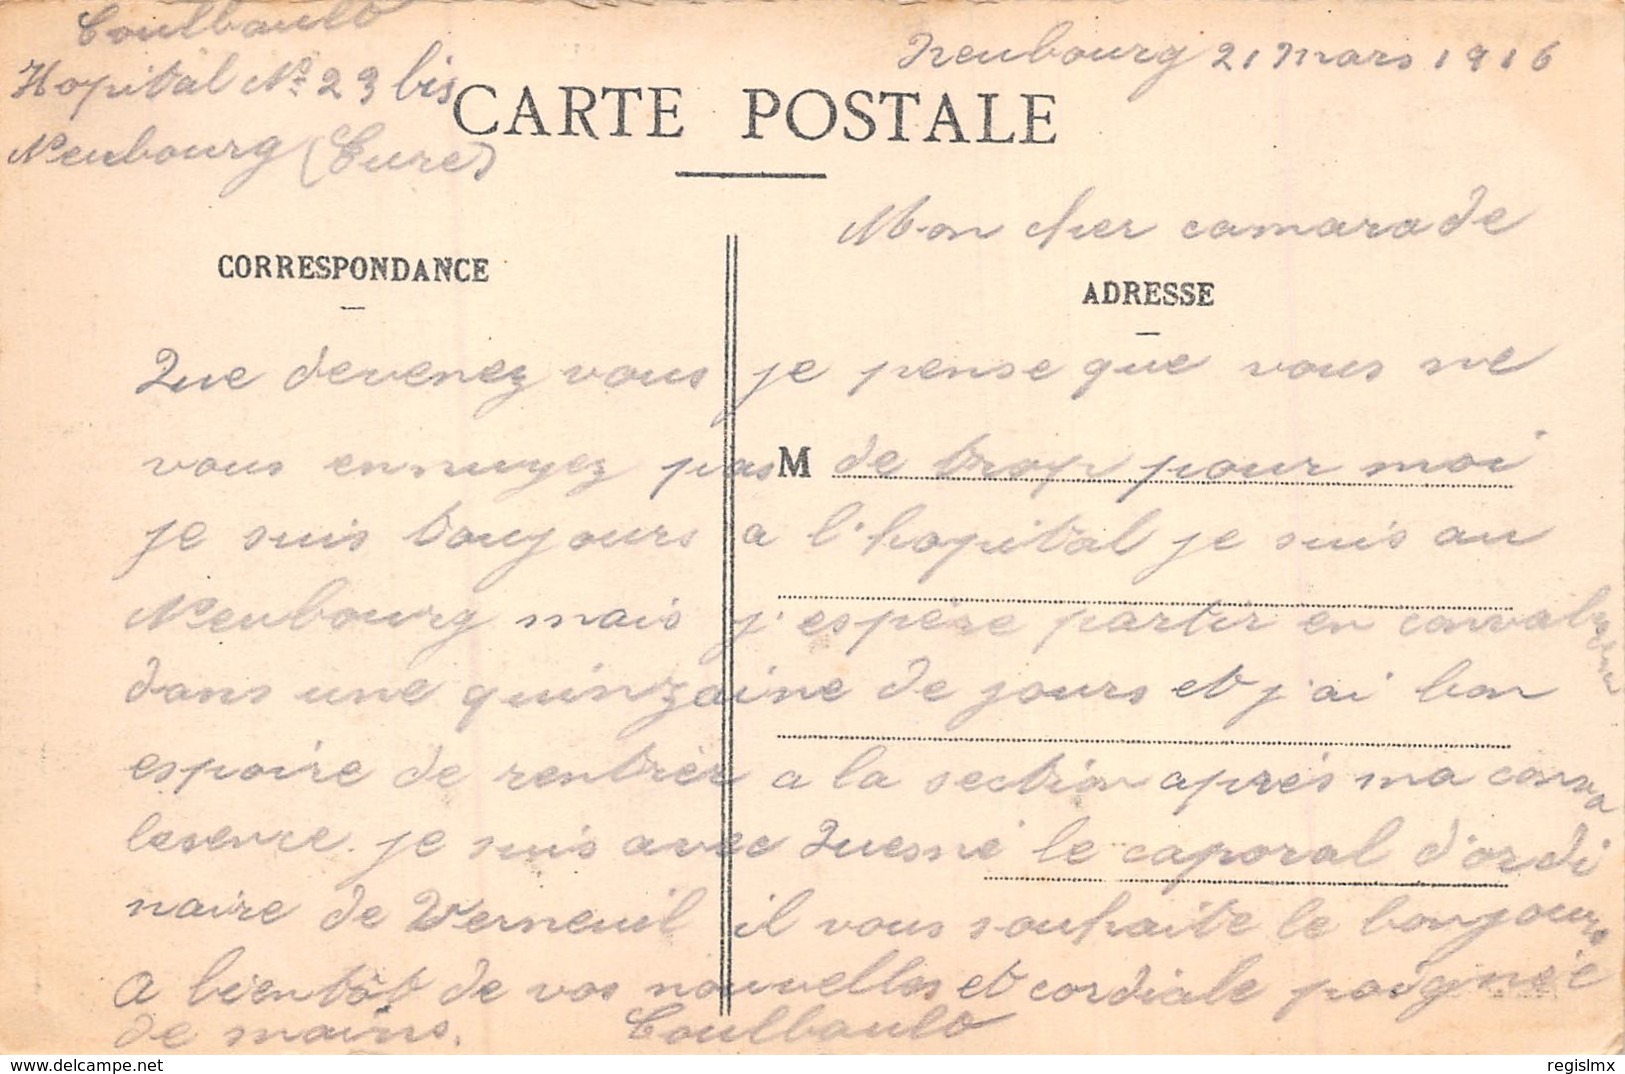 Coulbault
Hopital No 23 bis
Neubourg (Eure)
Neubourg 21 mars 1916
CARTE POSTALE
Mon cher camarade
CORRESPONDANCE
ADRESSE
Que devenez vous je pense que vous ne
vous ennuyez pas M de trop pour moi
je suis toujours a l'hopital je suis au
Neubourg mais j'espère partir en convalesence
dans une quinzaine de jours et j'ai bon
espoire de rentrer a la section aprés ma conva
lesence je suis avec Quesné le caporal d'ordi
naire de Verneuil il vous souhaite le bonjour
A bientôt de vos nouvelles et cordiale poignée
de mains. Coulbault
regislmx